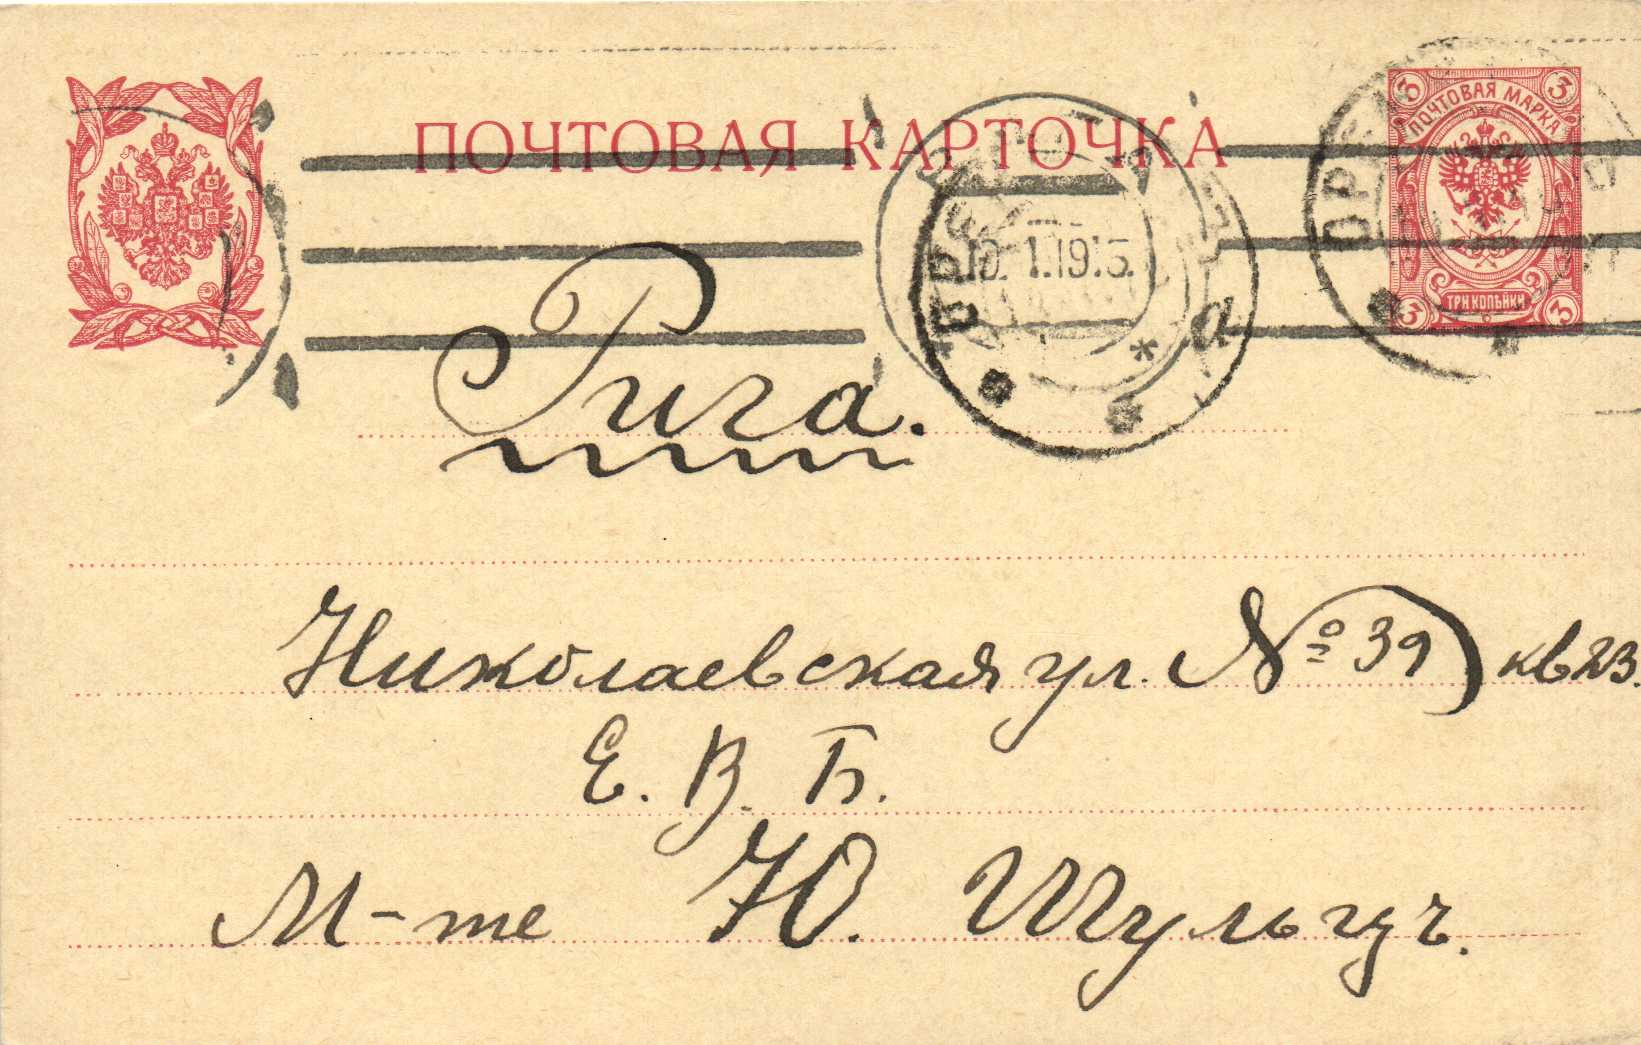 ПОЧТОВАЯ КАРТОЧКА
3 3
ПОЧТОВАЯ МАРКА
ТРИ КОПѢЙКИ
3 3
10.1.1915.
* а
Рига.
Николаевская ул. № 39 кв 23.
Е. В. Б.
М-те Ю. Шульцъ.